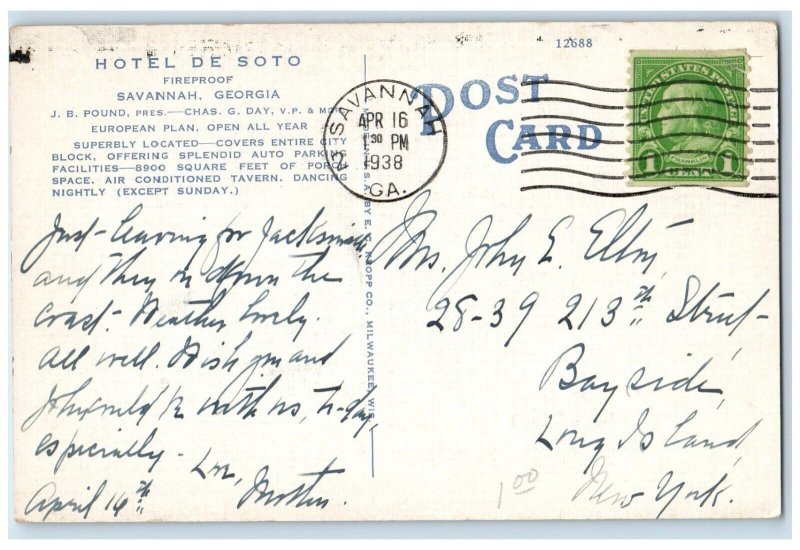 12688
HOTEL DE SOTO
FIREPROOF
SAVANNAH, GEORGIA
J. B. POUND, PRES.—CHAS. G. DAY, V.P. & MGR.
EUROPEAN PLAN, OPEN ALL YEAR
SUPERBLY LOCATED—COVERS ENTIRE CITY
BLOCK, OFFERING SPLENDID AUTO PARKING
FACILITIES—8900 SQUARE FEET OF PORCH
SPACE. AIR CONDITIONED TAVERN. DANCING
NIGHTLY (EXCEPT SUNDAY.)
POST
CARD
SAVANNAH
APR 16
1 30 PM
1938
GA.
UNITED STATES POSTAGE
FRANKLIN
1 CENT 1
U.S.A. BY E. C. KROPP CO., MILWAUKEE, WIS.
Just leaving for Jacksonville
and then on down the
coast. Weather lovely.
All well. Wish you and
John could be with us, to-day,
especially.
Love,
Mother.
April 16th
Mrs. John E. Elton,
28-39 213th Street
Bayside,
Long Island,
New York.
1.00